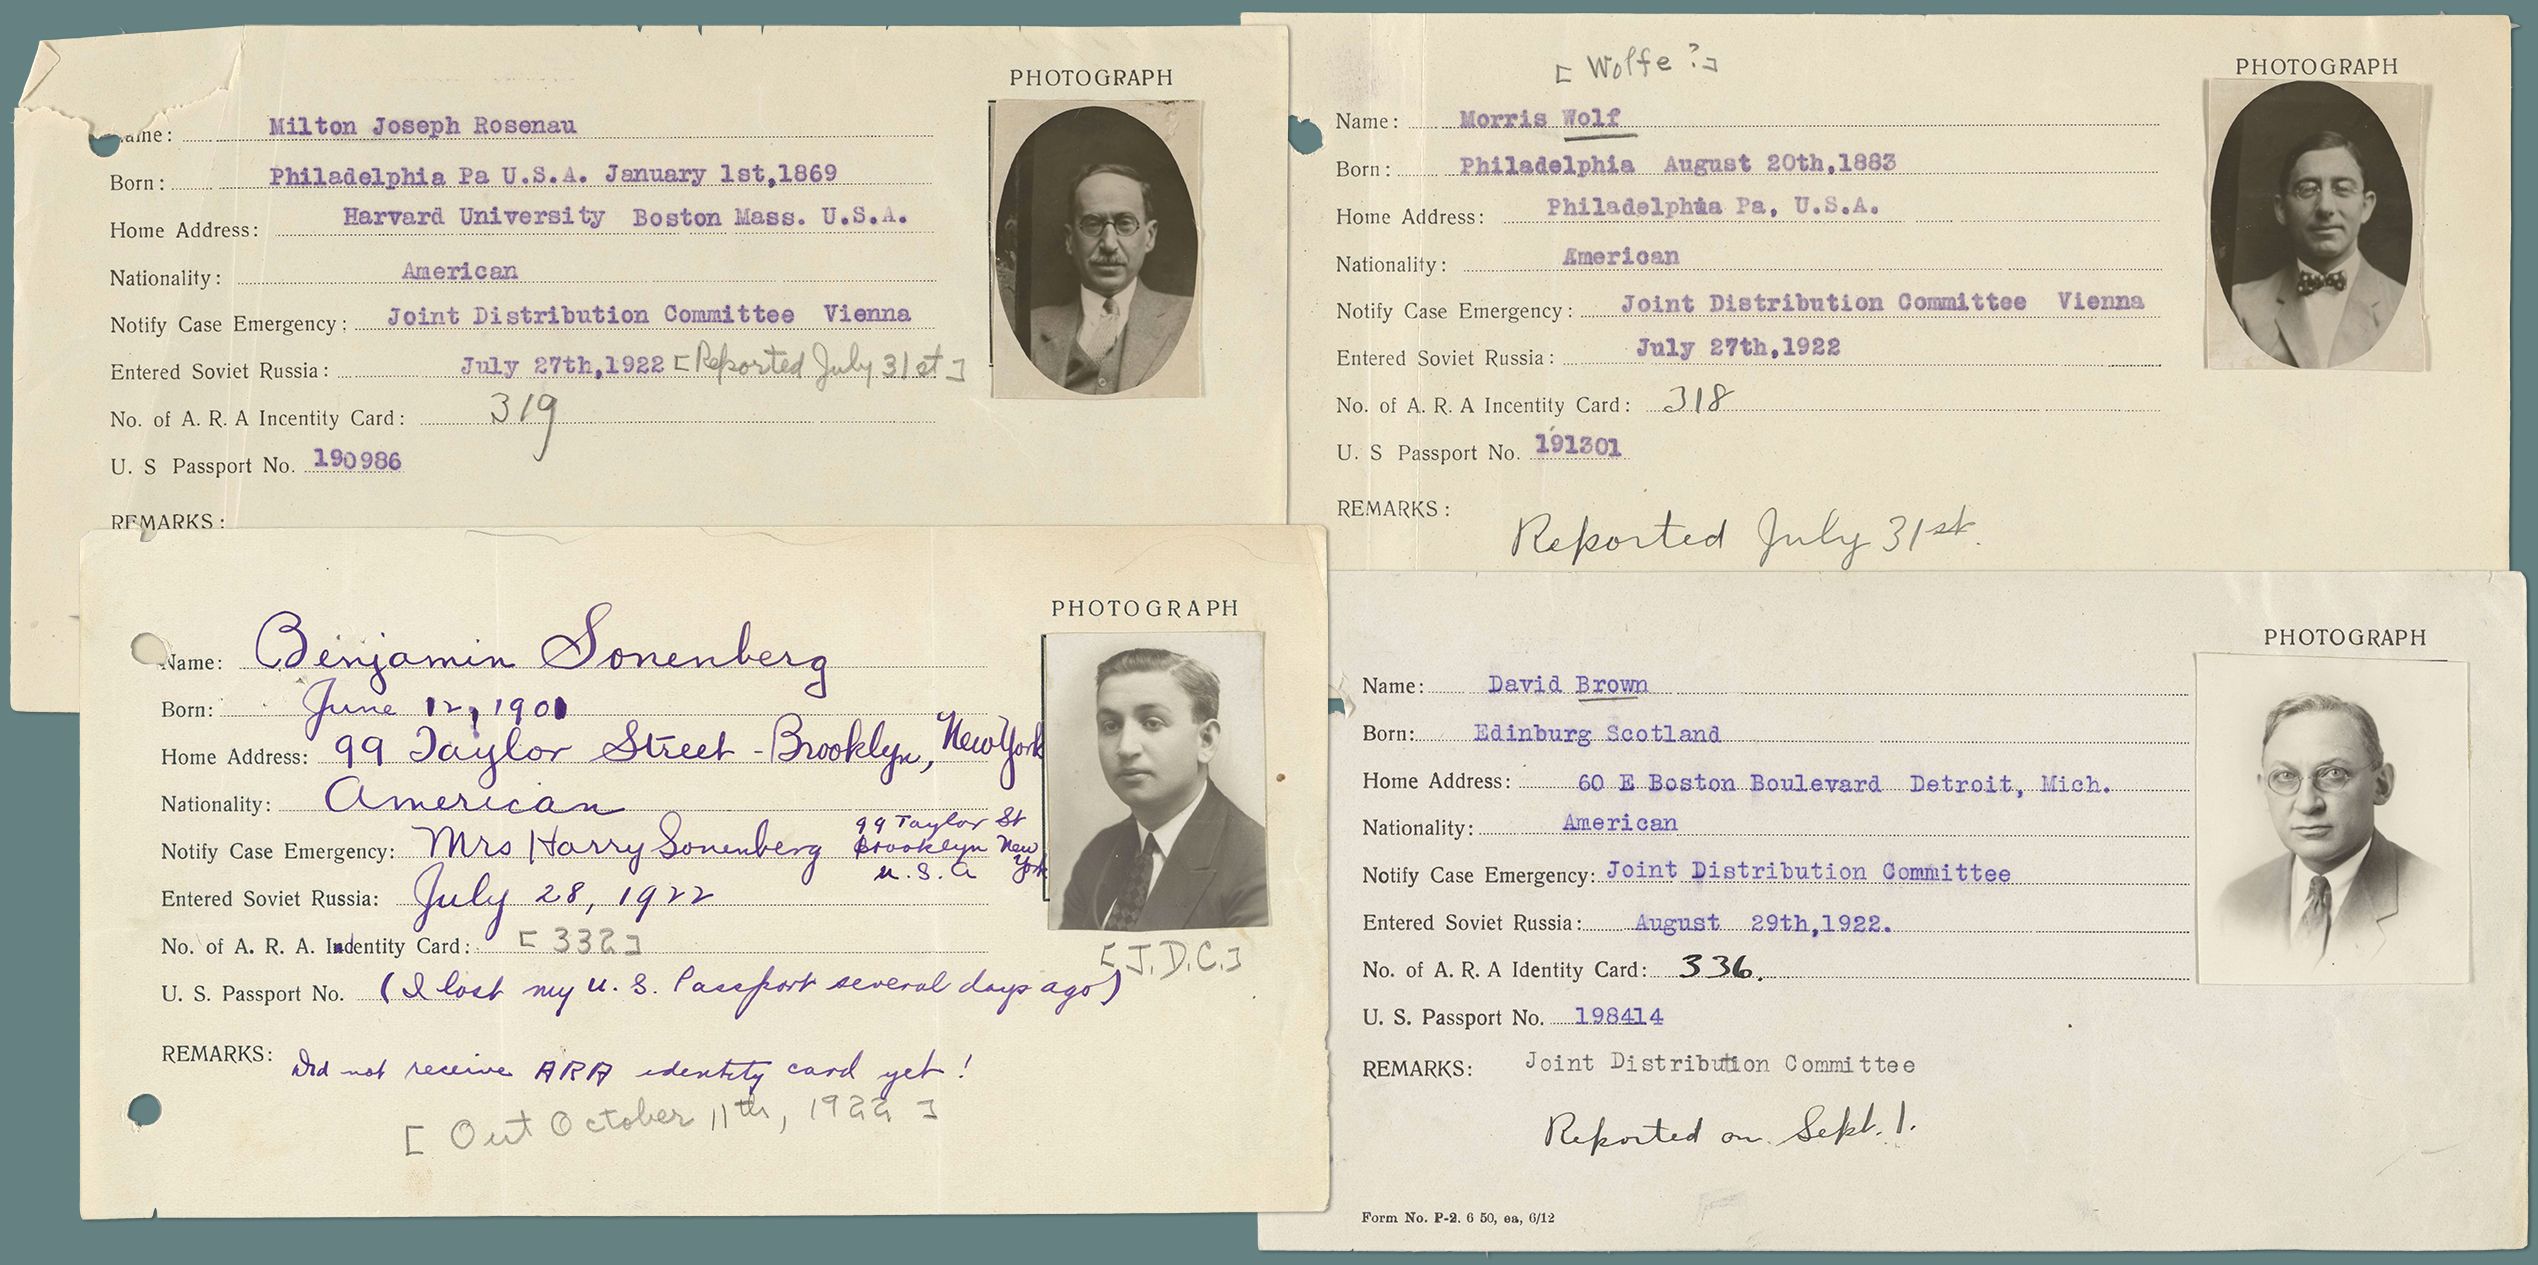 PHOTOGRAPH
ame: Milton Joseph Rosenau
Born: Philadelphia Pa U.S.A. January 1st,1869
Home Address: Harvard University Boston Mass. U.S.A.
Nationality: American
Notify Case Emergency: Joint Distribution Committee Vienna
Entered Soviet Russia: July 27th,1922 [Reported July 31st]
No. of A. R. A Incentity Card: 319
U. S Passport No. 190986
REMARKS:
[Wolfe?]
PHOTOGRAPH
Name: Morris Wolf
Born: Philadelphia August 20th,1883
Home Address: Philadelphia Pa, U.S.A.
Nationality: American
Notify Case Emergency: Joint Distribution Committee Vienna
Entered Soviet Russia: July 27th,1922
No. of A. R. A Incentity Card: 318
U. S Passport No. 191301
REMARKS:
Reported July 31st.
PHOTOGRAPH
Name: Benjamin Sonenberg
Born: June 12, 1901
Home Address: 99 Taylor Street - Brooklyn, New York
Nationality: American
Notify Case Emergency: Mrs Harry Sonenberg 99 Taylor St
Brooklyn New York
U.S.A
Entered Soviet Russia: July 28, 1922
No. of A. R. A. Indentity Card: [332]
[J.D.C.]
U. S. Passport No. (I lost my U.S. Passport several days ago)
REMARKS: Did not receive ARA identity card yet!
[Out October 11th, 1922]
PHOTOGRAPH
Name: David Brown
Born: Edinburg Scotland
Home Address: 60 E Boston Boulevard Detroit, Mich.
Nationality: American
Notify Case Emergency: Joint Distribution Committee
Entered Soviet Russia: August 29th,1922.
No. of A. R. A Identity Card: 336.
U. S. Passport No. 198414
REMARKS: Joint Distribution Committee
Reported on Sept. 1.
Form No. P-2. 6 50, ea, 6/12